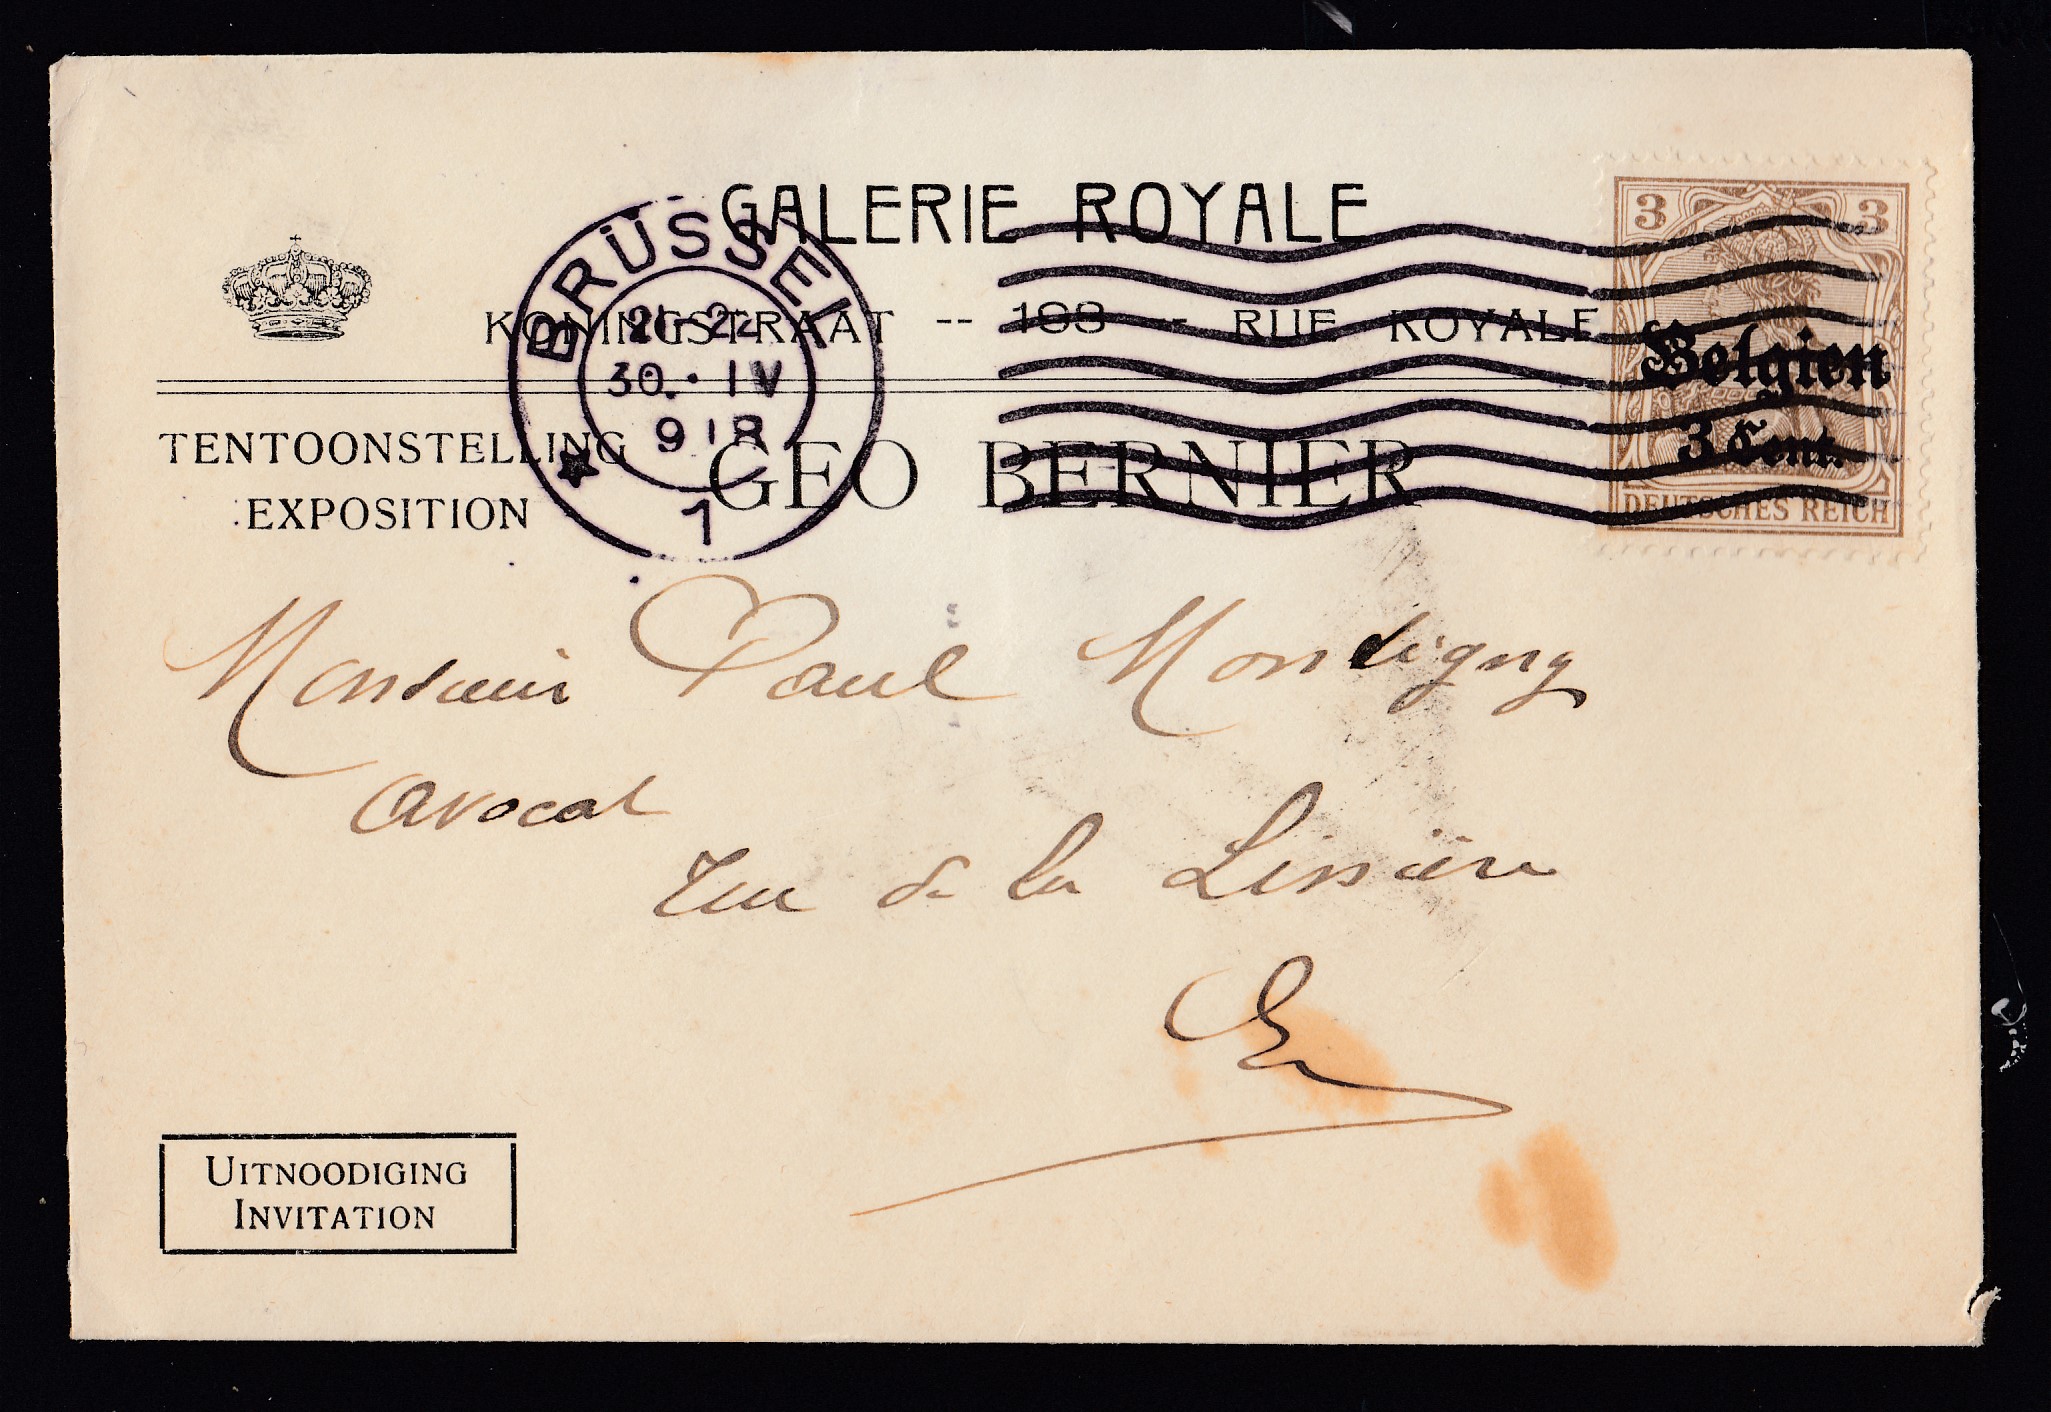 GALERIE ROYALE
KONINGSTRAAT -- 198 -- RUE ROYALE
TENTOONSTELLING
EXPOSITION
GEO BERNIER
BRÜSSEL
30. IV
918
1
3 3
Belgien
3 Cent.
DEUTSCHES REICH
Monsieur Paul Montigny
avocat
rue de la
UITNOODIGING
INVITATION